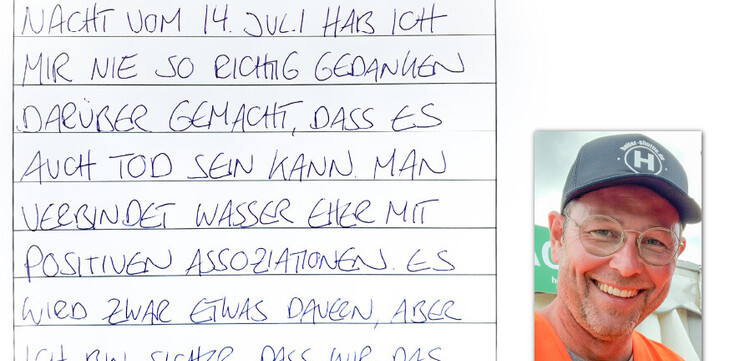 NACHT VOM 14. JULI HAB ICH
MIR NIE SO RICHTIG GEDANKEN
DARÜBER GEMACHT, DASS ES
AUCH TOD SEIN KANN. MAN
VERBINDET WASSER EHER MIT
POSITIVEN ASSOZIATIONEN. ES
WIRD ZWAR ETWAS DAUERN, ABER
ICH BIN SICHER, DASS WIR DAS
H